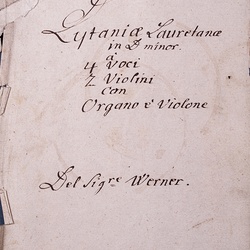 Lytaniæ Lauretanæ
in D minor.
à
4 Voci
2 Violini
con
Organo è Violone
Del Sigre Werner.